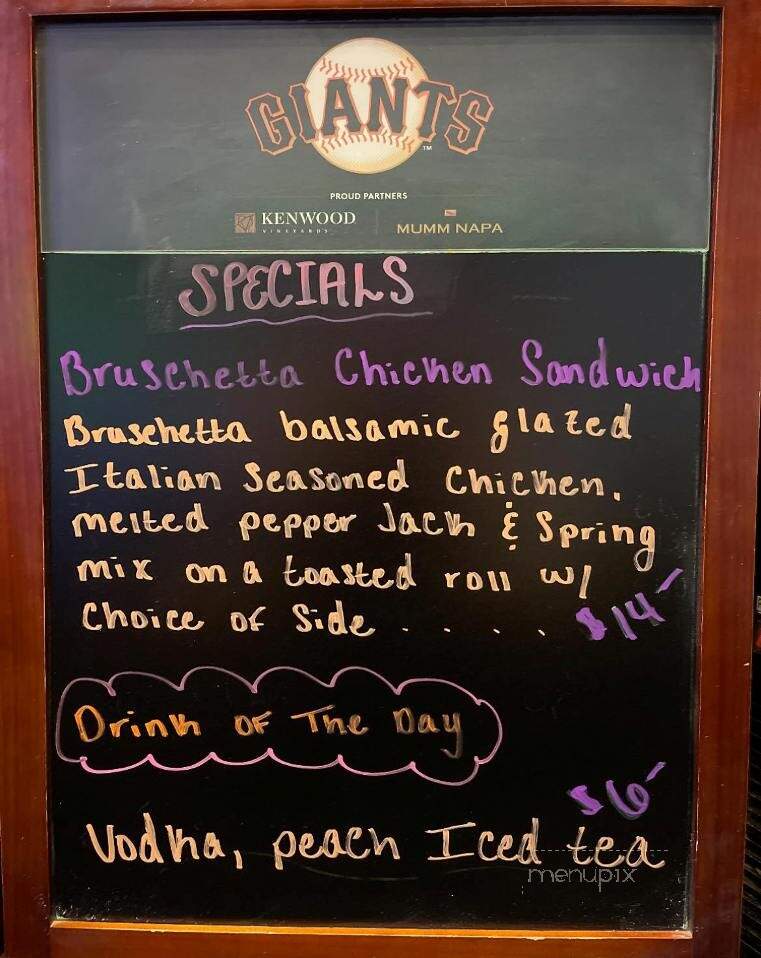 GIANTS
TM
PROUD PARTNERS
KENWOOD
VINEYARDS
MUMM NAPA
SPECIALS
Bruschetta Chicken Sandwich
Bruschetta balsamic glazed
Italian Seasoned Chicken,
melted pepper Jack & Spring
mix on a toasted roll w/
Choice of Side . . . . $14-
Drink of The Day
$6-
Vodka, peach Iced tea
menupix